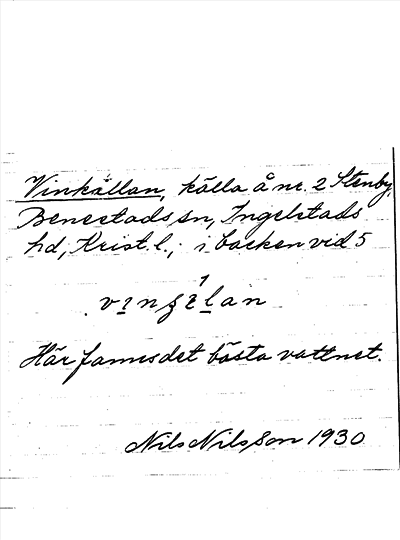 Vinkällan, källa å nr. 2 Stenby,
Benestads sn, Ingelstads
hd, Krist. l.; i backen vid 5
Här fannes det bästa vattnet.
Nils Nilsson 1930